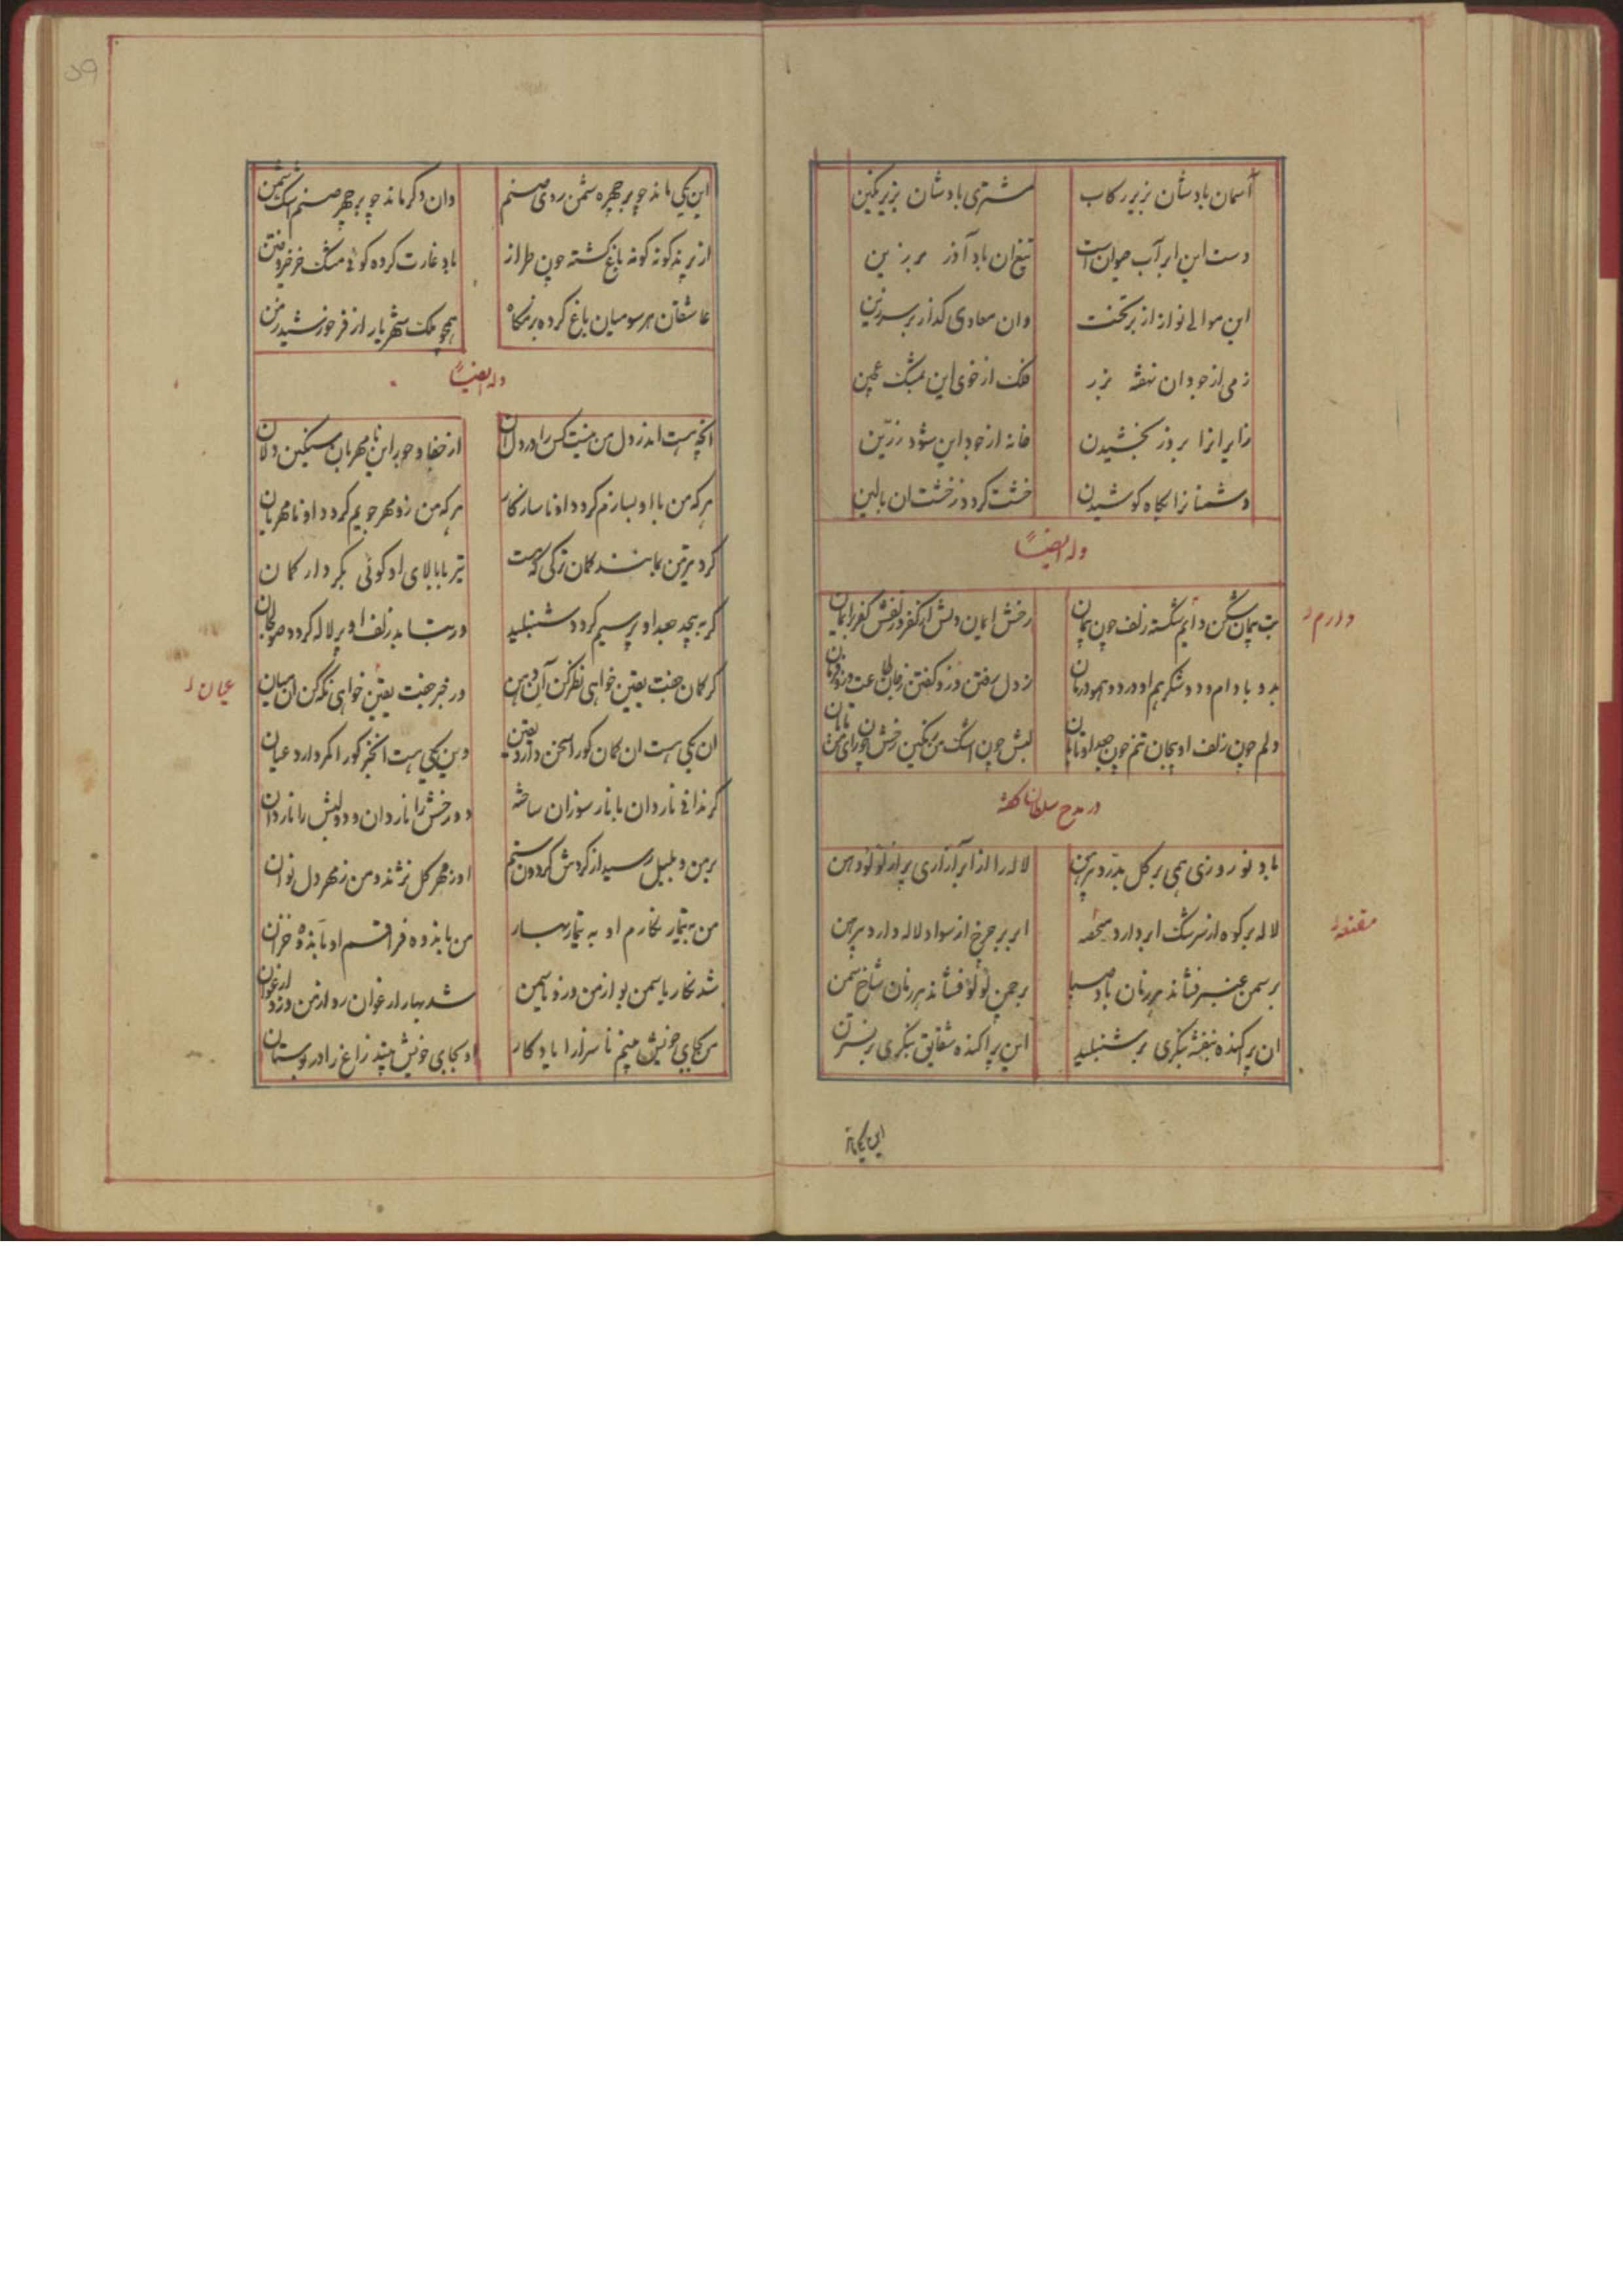 آسمان بادشان بزیر رکاب مشتری بادشان بزیر نگین
دست این ابر آب حیوان است تیغ ان باد آذر برزین
این موالی نواز از بر تخت وان معادی گداز بر سر زین
زمی از جود ان نهفته بزر فلک از خوی این بمشک عجین
زایرانرا بروز بخشیدن خانه از جود این شود زرین
دشمنانرا بگاه کوشیدن خشت گردد ز خشت ان بالین
وله ایضاً
بت پیمان شکن دایم شکسته زلف چون پیمان رخش ایمان دلش از کفر زلفش کفر را ایمان
دارم
بدو بادام و دو شکر هم او درد و هم درمان ز دل رفتن وزو گفتن ز جان طاعت وزو فرمان
دلم چون زلف او پیچان تنم چون جعد او تابان لبش چون اشک من رنگین رخش چون رای من تابان
در مدح سلطان گفته
باد نوروزی همی بر گل بدرد پیرهن لاله را از ابر آزاری پر از لؤلؤ دهن
لاله بر کوه از سرشک ابر دارد ابر بر چرخ از سواد لاله دارد پیرهن
مقنعه
بر سمن عنبر فشاند هر زمان باد صبا بر چمن لؤلؤ فشاند هر زمان شاخ سمن
ان پراکنده بنفشه بنگری بر شنبلید این پراکنده شقایق بنگری بر نسترن
این یکی ماند
این یکی ماند چو بر چهره شمن روی صنم وان دگر ماند چو بر چهر صنم اشک شمن
از پرند گونه گونه باغ گشته چون طراز باد غارت کرده گوئی مشک خرخیز و ختن
عاشقان هر سو میان باغ کرده بزمگاه همچو ملک شهریار از فر خورشید زمن
وله ایضاً
انچه هست اندر دل من نیست کس را در دل ان از جفا و جور این نامهربان سنگین دلان
هر که من با او بسازم گردد او ناسازگار هر که من زو مهر جویم گردد او نامهربان
کرد پر من بمانند کمان ترکی که هست تیر با بالای او گوئی بکردار کمان
گر بپیچد جعد او پر سیم گردد شنبلید ور بتابد زلف او پر لاله گردد صولجان
گر گمان جفت یقین خواهی نظر کن آن دهن ور خبر جفت یقین خواهی نگه کن ان میان
عیان
ان یکی هست ان گمان کورا سخن دارد یقین وین یکی هست انخبر کورا کمر دارد عیان
گر ندانی ناردان با نار سوزان ساخته دو رخش را نار دان و دو لبش را ناردان
بر من و بلبل رسید از گردش گردون ستم او ز مهر گل نژند و من ز مهر دلنوان
من به تیمار نگارم او به تیمار بهار من بانده فراقستم او بانده خزان
شد نگار یاسمن بو از من وزو یاسمین شد بهار ارغوان رو از من وزو ارغوان
من بجای خویش بینم ناسزا را یادگار او بجای خویش بیند زاغ را در بوستان
۵۹